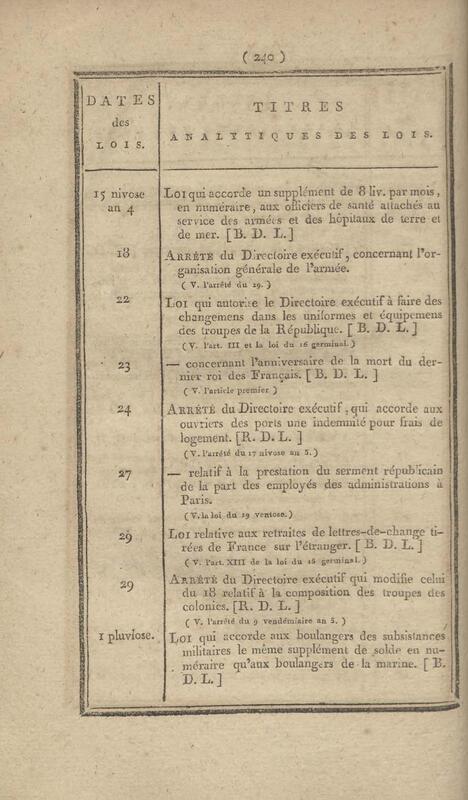 ( 240 )
DATES
des
LOIS.
TITRES
ANALYTIQUES DES LOIS.
15 nivose
an 4
Loi qui accorde un supplément de 8 liv. par mois,
en numéraire, aux officiers de santé attachés au
service des armées et des hôpitaux de terre et
de mer. [B. D. L.]
18
Arrêté du Directoire exécutif, concernant l'or-
ganisation générale de l'armée.
( V. l'arrêté du 29. )
22
Loi qui autorise le Directoire exécutif à faire des
changemens dans les uniformes et équipemens
des troupes de la République. [ B. D. L. ]
(V. l'art. III et la loi du 16 germinal.)
23
— concernant l'anniversaire de la mort du der-
nier roi des Français. [ B. D. L. ]
( V. l'article premier )
24
Arrêté du Directoire exécutif, qui accorde aux
ouvriers des ports une indemnité pour frais de
logement. [R. D. L. ]
(V. l'arrêté du 17 nivose an 5.)
27
— relatif à la prestation du serment républicain
de la part des employés des administrations à
Paris.
(V. la loi du 19 ventose.)
29
Loi relative aux retraites de lettres-de-change ti-
rées de France sur l'étranger. [ B. D. L. ]
( V. l'art. XIII de la loi du 15 germinal.)
29
Arrêté du Directoire exécutif qui modifie celui
du 18 relatif à la composition des troupes des
colonies. [R. D. L. ]
( V. l'arrêté du 9 vendémiaire an 5. )
1 pluviose.
Loi qui accorde aux boulangers des subsistances
militaires le même supplément de solde en nu-
méraire qu'aux boulangers de la marine. [ B.
D. L. ]